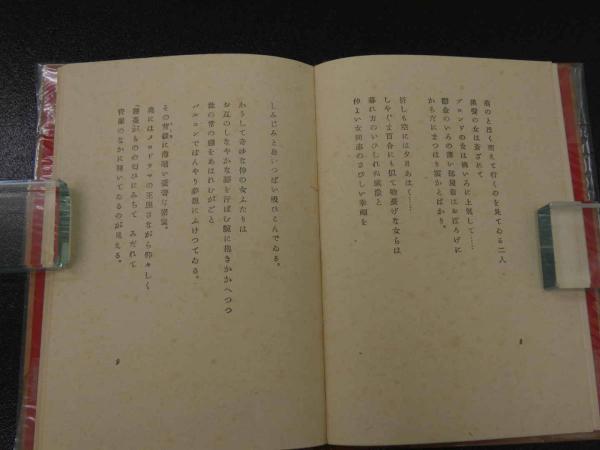 燕のとほく消えて行くのを見てゐる二人
黒髪の女は蒼ざめて
ブロンドの女は桃いろに上気して……
鬱金のいろの薄い部屋着はおぼろげに
からだにまつはり雲かとばかり。
折しも空には夕月あはく……
しやぐま百合にも似て物憂げな女らは
暮れ方のいひしれぬ感激と
仲よい女同志のさびしい幸福を
8
しみじみと胸いつぱい吸ひこんでゐる。
かうして奇妙な仲の女ふたりは
お互のしなやかな腰を汗ばむ腕に抱きかかへつつ
世の常の恋をあはれむがごと
バルコンでぼんやり夢想にふけつてゐる。
その背後に薄暗い豪奢な密室。
奥にはメロドラマの王座さながら仰々しく
もののの匂ひにみちて みだれて
背景のなかに開いてゐるのが見える。
9